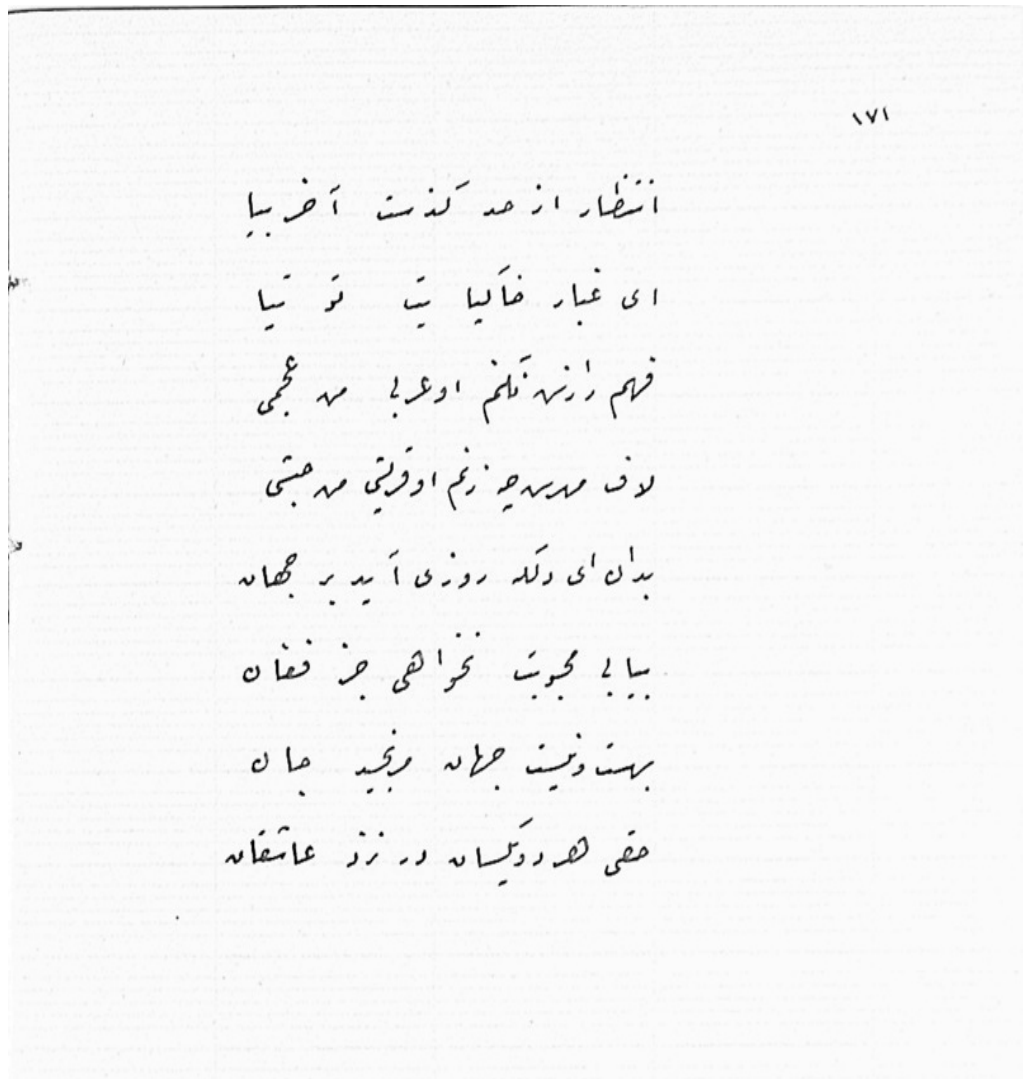 ١٧١
انتظار از حد كذشت آخر بيا
اى غبار خاكپا يت تو تيا
فهم رازش نكنم او عربى من عجمى
لاف مهرش چه زنم او قريشى من حبشى
بدان اى دكه روزى آيد بر جهان
بيابى محبوبت نخواهى جز فغان
بهست و نيست جهان مرنجيد جان
حقى هر دو يكسان در نزد عاشقان